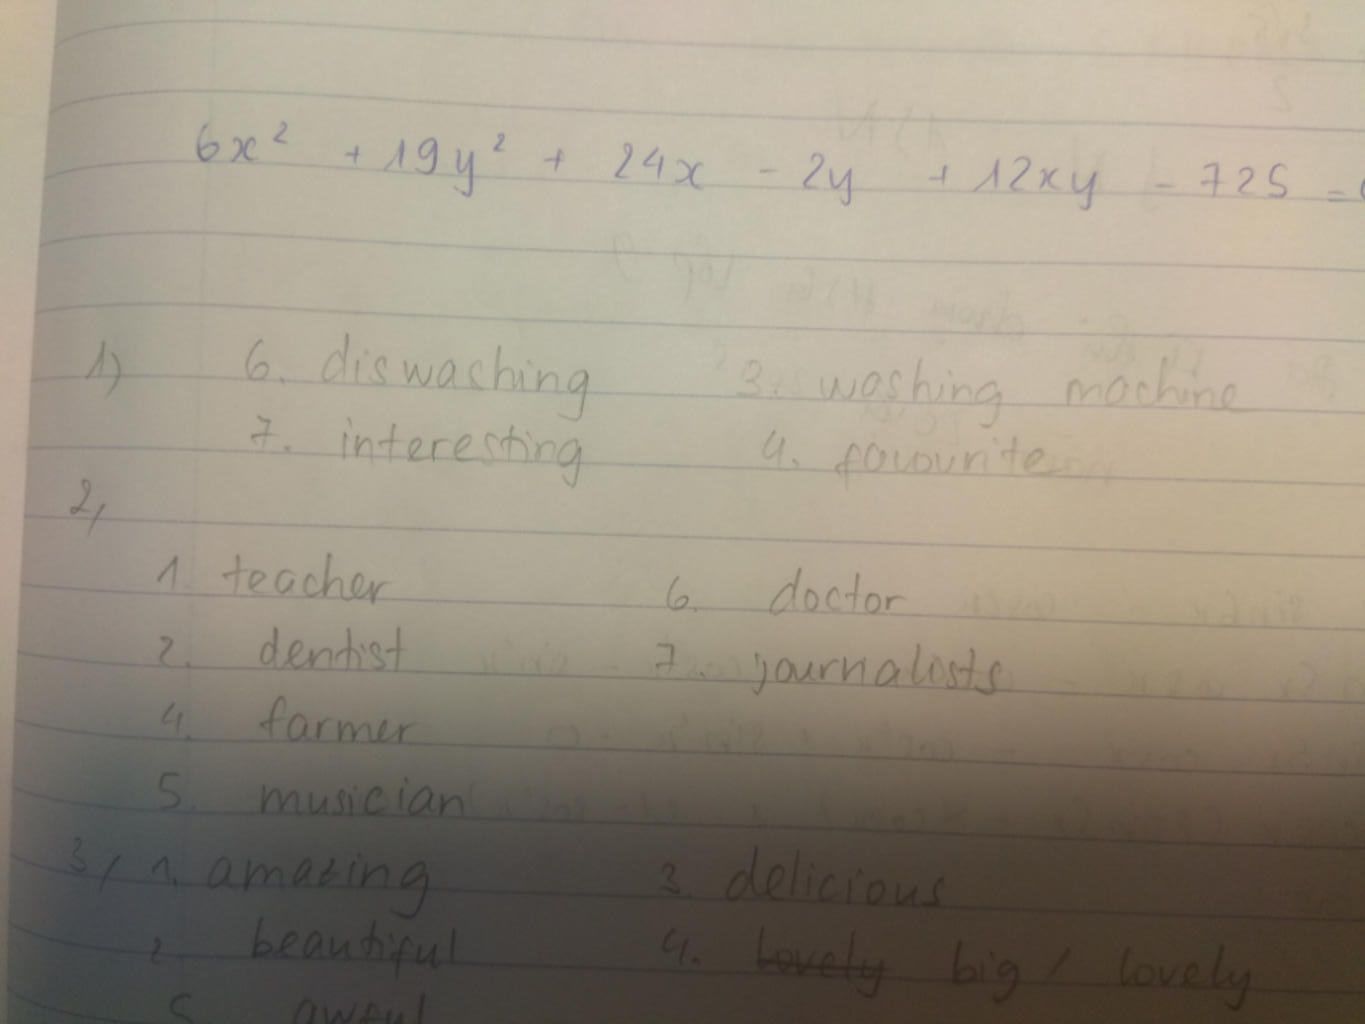 6x² + 19y² + 24x - 2y + 12xy - 725 =
1) 6. diswaching 3. washing machine
7. interesting 4. favourite
2,
1. teacher 6. doctor
2. dentist 7. journalists
4. farmer
5. musician
3, 1. amazing 3. delicious
2. beautiful 4. lovely big / lovely
5. awful